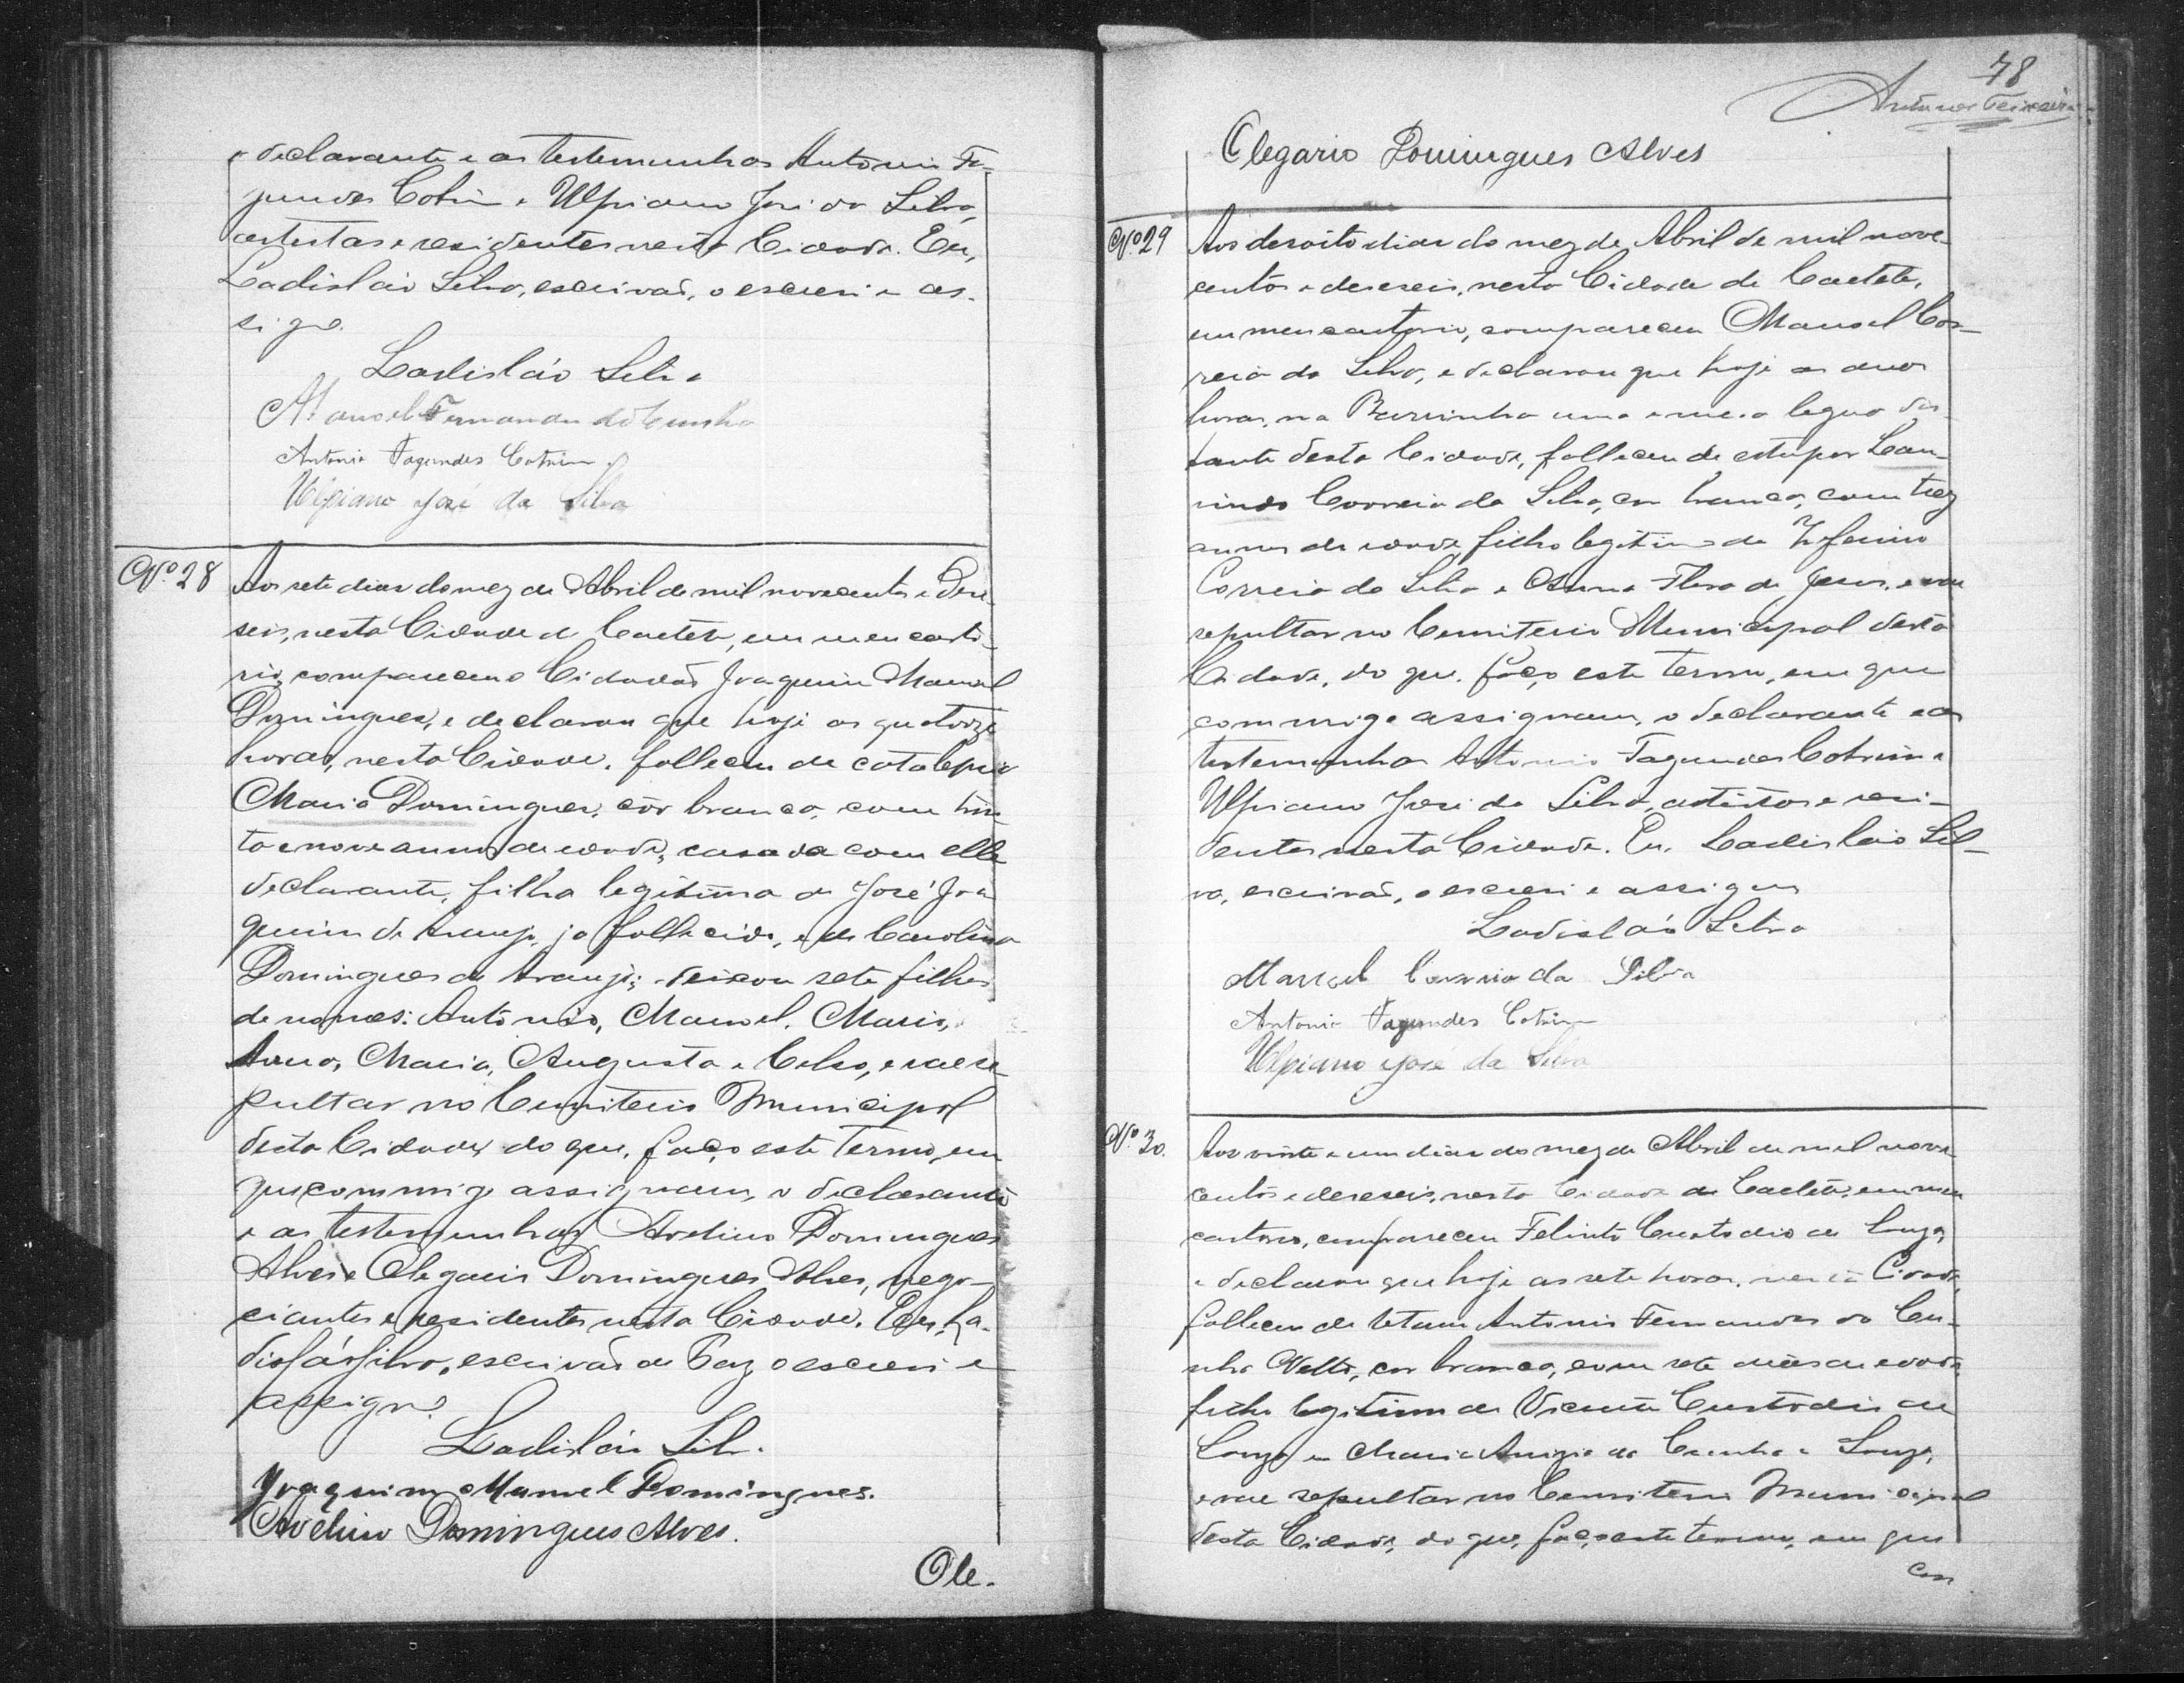 o declarante e as testemunhas Antonio Fa-
gundes Cotrim e Ulpiano José da Silva,
artistas e residentes nesta Cidade. Eu,
Ladisláo Silva, escrivaõ, o escrevi e as-
signo.
Ladisláo Silva
Manoel Fernandes da Cunha
Antonio Fagundes Cotrim
Ulpiano José da Silva
Nº 28 Aos sete dias do mez de Abril de mil novecentos e dese-
seis, nesta Cidade de Caeteté, em meu carto-
rio, compareceu o Cidadaõ Joaquim Manoel
Domingues, e declarou que hoje as quatorze
horas, nesta Cidade, falleceu de catalepsia
Maria Domingues, côr branca, com trin-
ta e nove annos de edade, casada com elle
declarante, filha legitima de José Joa-
quim de Araujo, ja fallecido, e de Carolina
Domingues de Araujo; deixou sete filhos
de nomes: Antonio, Manoel, Mario,
Anna, Maria, Augusta e Celso, e vae se-
pultar no Cemiterio Municipal
desta Cidade, do que, faço este termo, em
que commigo assignam, o declarante
e as testemunhas Avelino Domingues
Alves e Olegario Domingues Alves, nego-
ciantes e residentes nesta Cidade. Eu, La-
disláo Silva, escrivaõ de Paz, o escrevi e
assigno.
Ladisláo Silva.
Joaquim Manuel Domingues.
Avelino Domingues Alves.
Ole-
78
Antunes Teixeira
Olegario Domingues Alves
Nº 29 Aos desoito dias do mez de Abril de mil nove-
centos e deseseis, nesta Cidade de Caeteté,
em meu cartorio, compareceu Manoel Cor-
reia da Silva, e declarou que hoje as duas
horas, na Barrinha uma e meia legua dis-
tante desta Cidade, falleceu de estupor Lau-
rindo Correia da Silva, cor branca, com trez
annos de edade, filho legitimo de Zeferino
Correia da Silva e Anna Flora de Jesus, e vae
sepultar no Cemiterio Municipal desta
Cidade, do que, faço este termo, em que
commigo assignam, o declarante e as
testemunhas Antonio Fagundes Cotrim e
Ulpiano José da Silva, artistas e resi-
dentes nesta Cidade. Eu, Ladisláo Sil-
va, escrivaõ, o escrevi e assigno
Ladisláo Silva
Manoel Correia da Silva
Antonio Fagundes Cotrim
Ulpiano José da Silva
Nº 30. Aos vinte e um dias do mez de Abril de mil nove-
centos e deseseis, nesta Cidade de Caeteté, em meu
cartorio, compareceu Felinto Custodio de Souza,
e declarou que hoje as sete horas, nesta Cidade,
falleceu de tetano Antonio Fernandes da Cu-
nha Netto, cor branca, com sete dias de edade,
filho legitimo de Vicente Custodio de
Souza e Maria Anizia da Cunha e Souza,
e vae sepultar no Cemiterio Municipal
desta Cidade, do que, faço este termo, em que
com